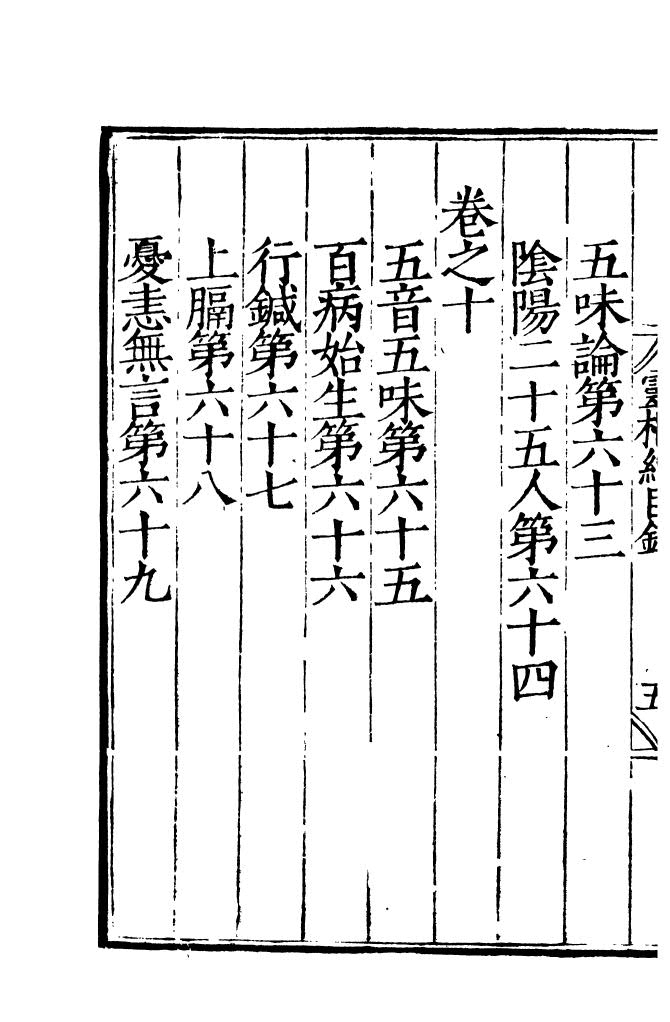 靈樞經目錄
五
五味論第六十三
陰陽二十五人第六十四
卷之十
五音五味第六十五
百病始生第六十六
行鍼第六十七
上膈第六十八
憂恚無言第六十九